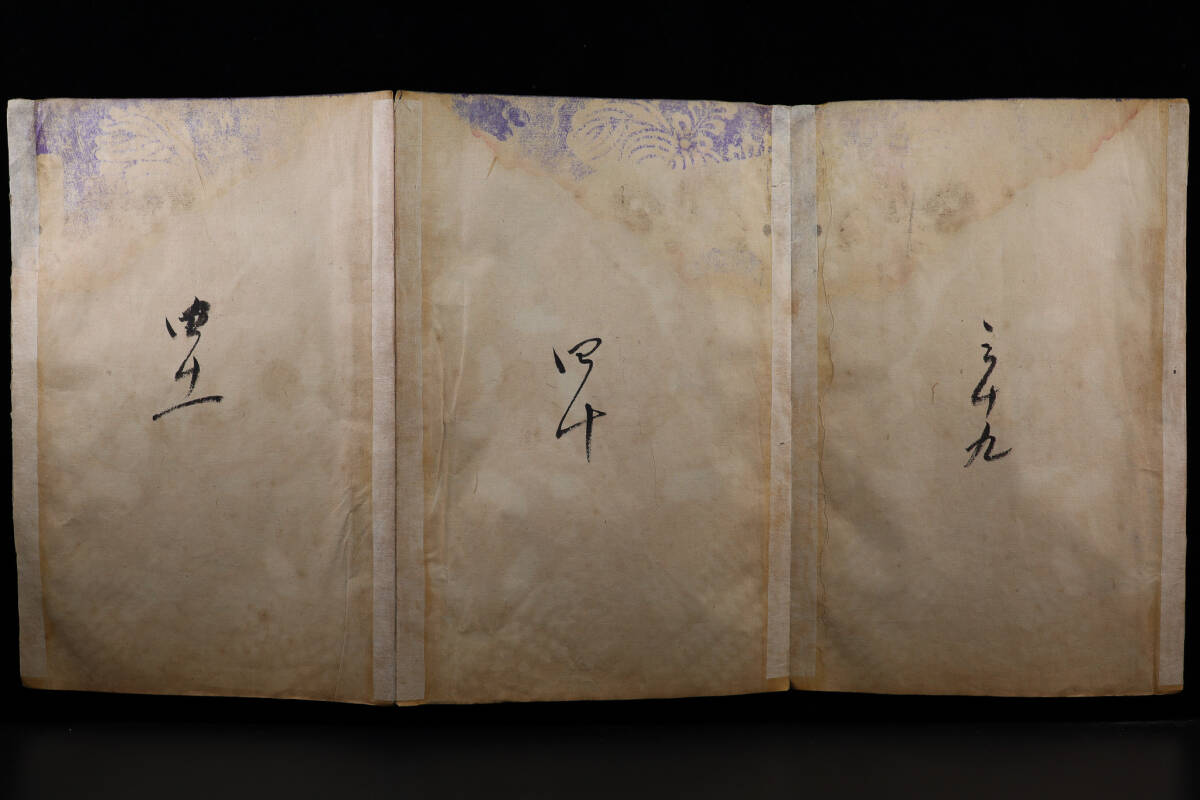 三十九
四十
四十一